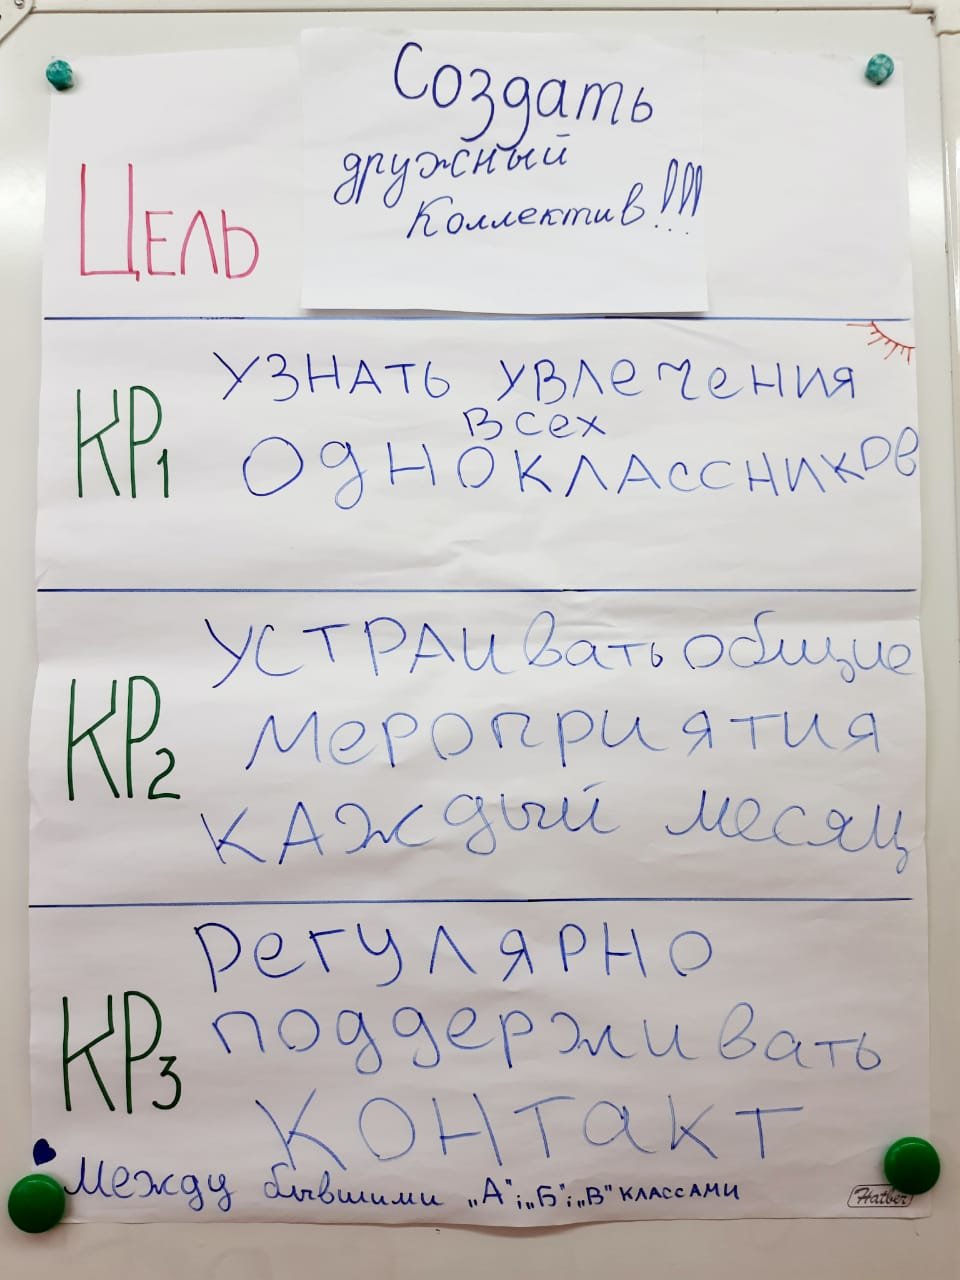 Создать
дружный
Коллектив!!!
Цель
КР1
Узнать увлечения
всех
одноклассников
КР2
Устраивать общие
мероприятия
каждый месяц
КР3
Регулярно
поддерживать
контакт
между бывшими „А";„Б";„В" классами
Hatber